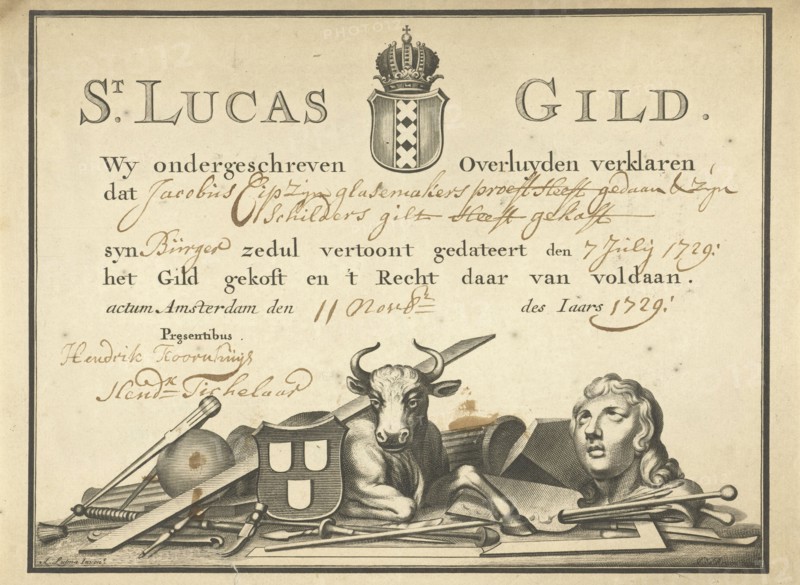 ST. LUCAS GILD.
Wy ondergeschreven Overluyden verklaren
dat Jacobus glasemakers proeft Heeft gedaan & zijn
Schilders gilt Heeft gekoft
syn Bürger zedul vertoont gedateert den 7 July 1729:
het Gild gekoft en 't Recht daar van voldaan.
actum Amsterdam den 11 Novbr des Iaars 1729:
Presentibus.
Hendrik
Hendk Tichelaar